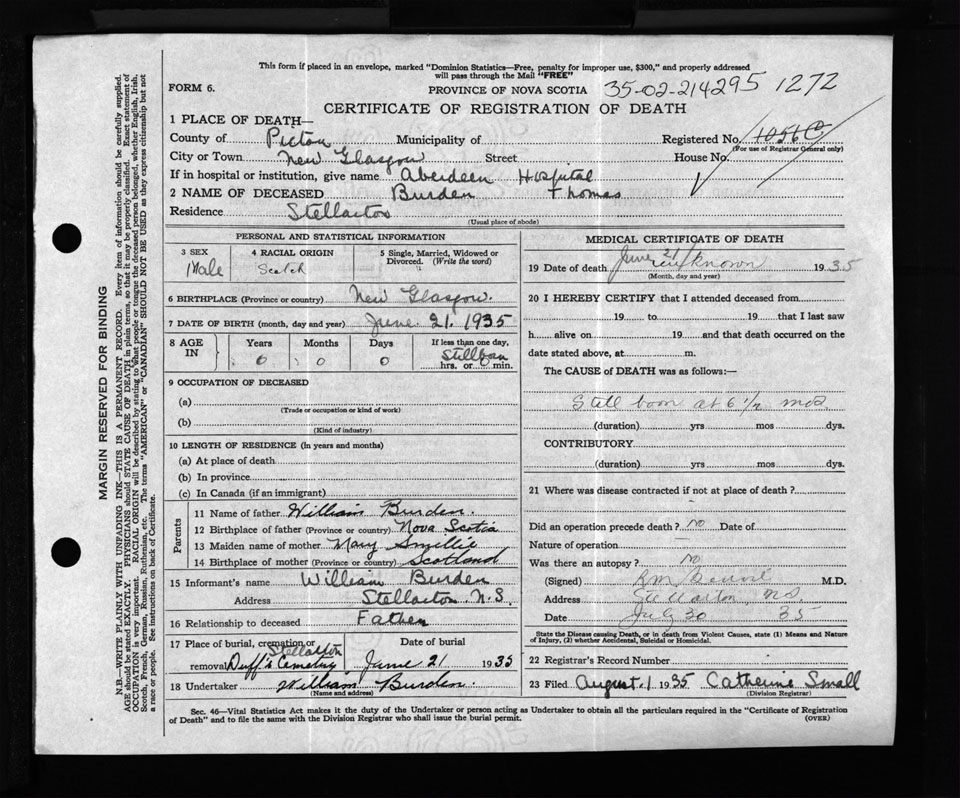 This form if placed in an envelope, marked "Dominion Statistics—Free, penalty for improper use, $300," and properly addressed
will pass through the Mail "FREE"
FORM 6.
PROVINCE OF NOVA SCOTIA 35-02-214295 1272
CERTIFICATE OF REGISTRATION OF DEATH
1 PLACE OF DEATH—
County of Pictou Municipality of Registered No. 1056
(For use of Registrar General only)
City or Town New Glasgow Street House No.
If in hospital or institution, give name Aberdeen Hospital
2 NAME OF DECEASED Burden Thomas
Residence Stellarton
(Usual place of abode)
PERSONAL AND STATISTICAL INFORMATION
3 SEX 4 RACIAL ORIGIN 5 Single, Married, Widowed or
Divorced. (Write the word)
Male Scotch
6 BIRTHPLACE (Province or country) New Glasgow.
7 DATE OF BIRTH (month, day and year) June 21. 1935
8 AGE IN Years Months Days If less than one day,
0 0 0 Stillborn
hrs. or min.
9 OCCUPATION OF DECEASED
(a)
(Trade or occupation or kind of work)
(b)
(Kind of industry)
10 LENGTH OF RESIDENCE (in years and months)
(a) At place of death
(b) In province
(c) In Canada (if an immigrant)
Parents
11 Name of father William Burden.
12 Birthplace of father (Province or country) Nova Scotia
13 Maiden name of mother Mary Smellie
14 Birthplace of mother (Province or country) Scotland
15 Informant's name William Burden
Address Stellarton. N.S.
16 Relationship to deceased Father
17 Place of burial, cremation or Date of burial
Stellarton
removal Duff's Cemetery June 21 1935
18 Undertaker William Burden.
(Name and address)
MEDICAL CERTIFICATE OF DEATH
19 Date of death June 21 unknown 1935
(Month, day and year)
20 I HEREBY CERTIFY that I attended deceased from
19 to 19 that I last saw
h alive on 19 and that death occurred on the
date stated above, at m.
The CAUSE of DEATH was as follows:—
Still born at 6 1/2 mos.
(duration) yrs mos dys.
CONTRIBUTORY
(duration) yrs mos dys.
21 Where was disease contracted if not at place of death ?
Did an operation precede death ? no Date of
Nature of operation
Was there an autopsy ? no
(Signed) M.D.
Address Stellarton, NS
Date July 30 35
State the Disease causing Death, or in death from Violent Causes, state (1) Means and Nature
of Injury, (2) whether Accidental, Suicidal or Homicidal.
22 Registrar's Record Number
23 Filed August. 1 1935 Catherine Small
(Division Registrar)
Sec. 46—Vital Statistics Act makes it the duty of the Undertaker or person acting as Undertaker to obtain all the particulars required in the "Certificate of Registration
of Death" and to file the same with the Division Registrar who shall issue the burial permit. (OVER)
MARGIN RESERVED FOR BINDING
N.B.—WRITE PLAINLY WITH UNFADING INK—THIS IS A PERMANENT RECORD. Every item of information should be carefully supplied.
AGE should be stated EXACTLY. PHYSICIANS should STATE CAUSE OF DEATH in plain terms, so that it may be properly classified. Exact statement of
OCCUPATION is very important. RACIAL ORIGIN will be described by stating to what people or tongue the deceased person belonged, whether English, Irish,
Scotch, French, German, Russian, Ruthenian, etc. The terms "AMERICAN" or "CANADIAN" SHOULD NOT BE USED as they express citizenship but not
a race or people. See instructions on back of Certificate.